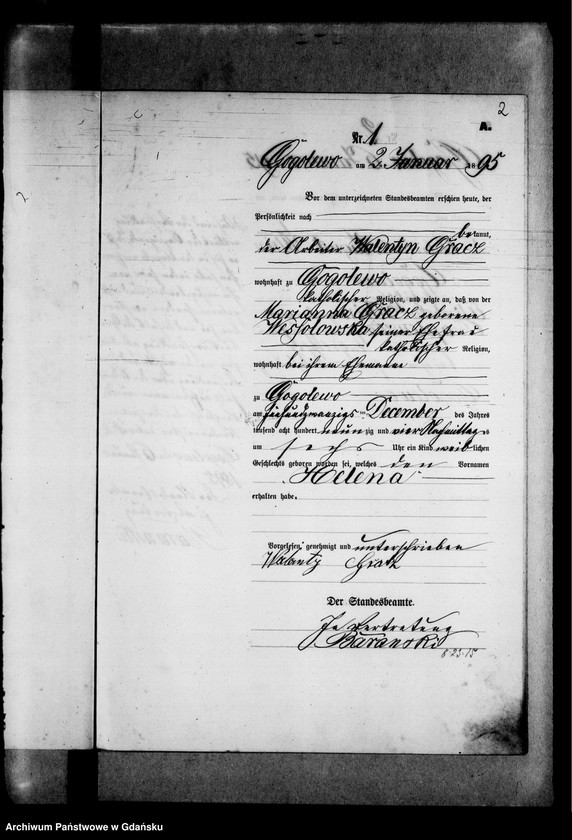 2
A.
Nr. 1
Gogolewo am 2. Januar 1895
Vor dem unterzeichneten Standesbeamten erschien heute, der
Persönlichkeit nach
bekannt,
der Arbeiter Walentyn Gracz
wohnhaft zu Gogolewo
katholischer Religion, und zeigte an, daß von der
Marianna Gracz geborene
Wessolowska seiner Ehefrau
katholischer Religion,
wohnhaft bei ihrem Ehemanne
zu Gogolewo
am December des Jahres
tausend acht hundert neunzig und vier Nachmittags
um sechs Uhr ein Kind weiblichen
Geschlechts geboren worden sei, welches den Vornamen
Helena
erhalten habe.
Vorgelesen, genehmigt und unterschrieben
Walenty Gracz
Der Standesbeamte.
In Vertretung
Baranski
Archiwum Państwowe w Gdańsku